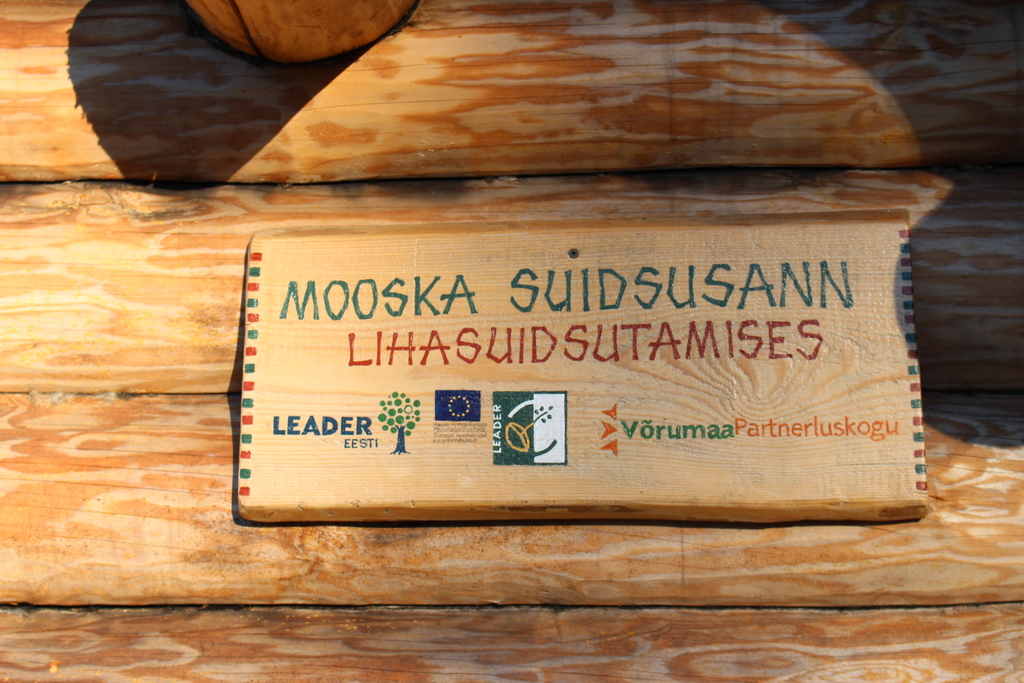 MOOSKA SUIDSUSANN
LIHASUIDSUTAMISES
LEADER
EESTI
LEADER
VõrumaaPartnerluskogu